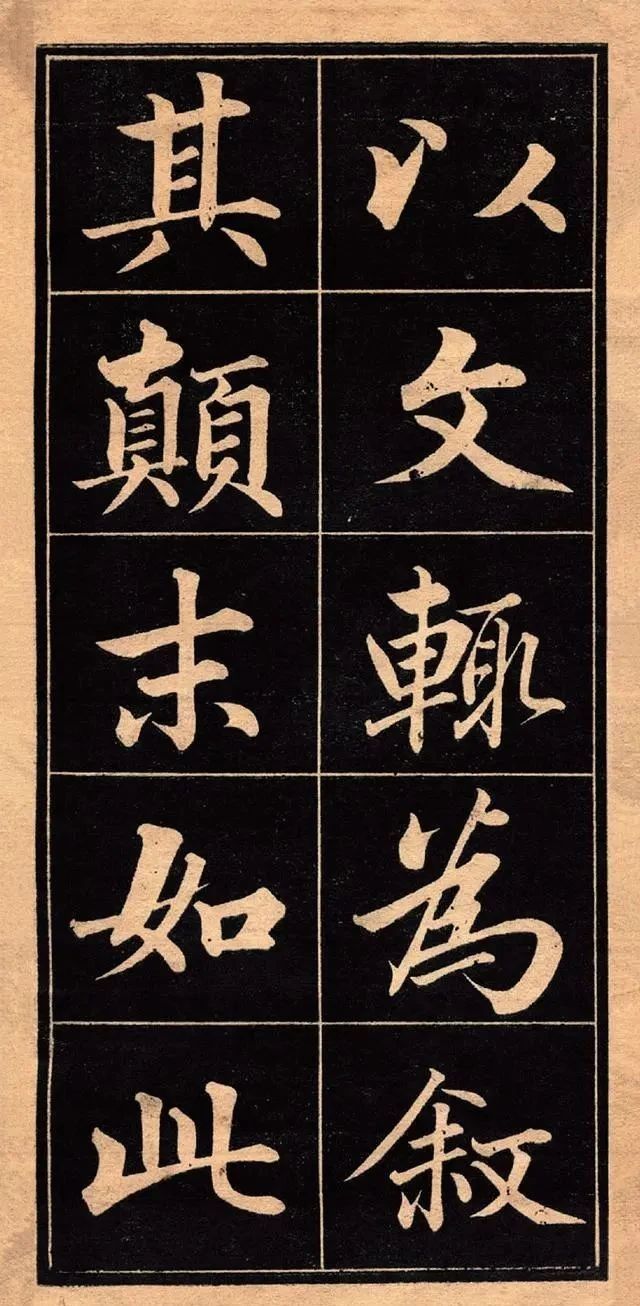 以文輙為叙
其顛末如此